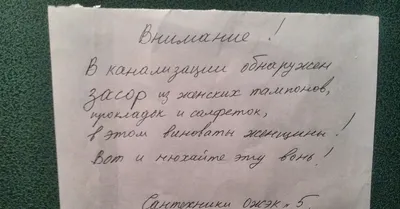 Внимание!
В канализации обнаружен
засор из женских тампонов,
прокладок и салфеток,
в этом виноваты женщины!
Вот и нюхайте эту вонь!
Сантехники ОЖЭК-5.